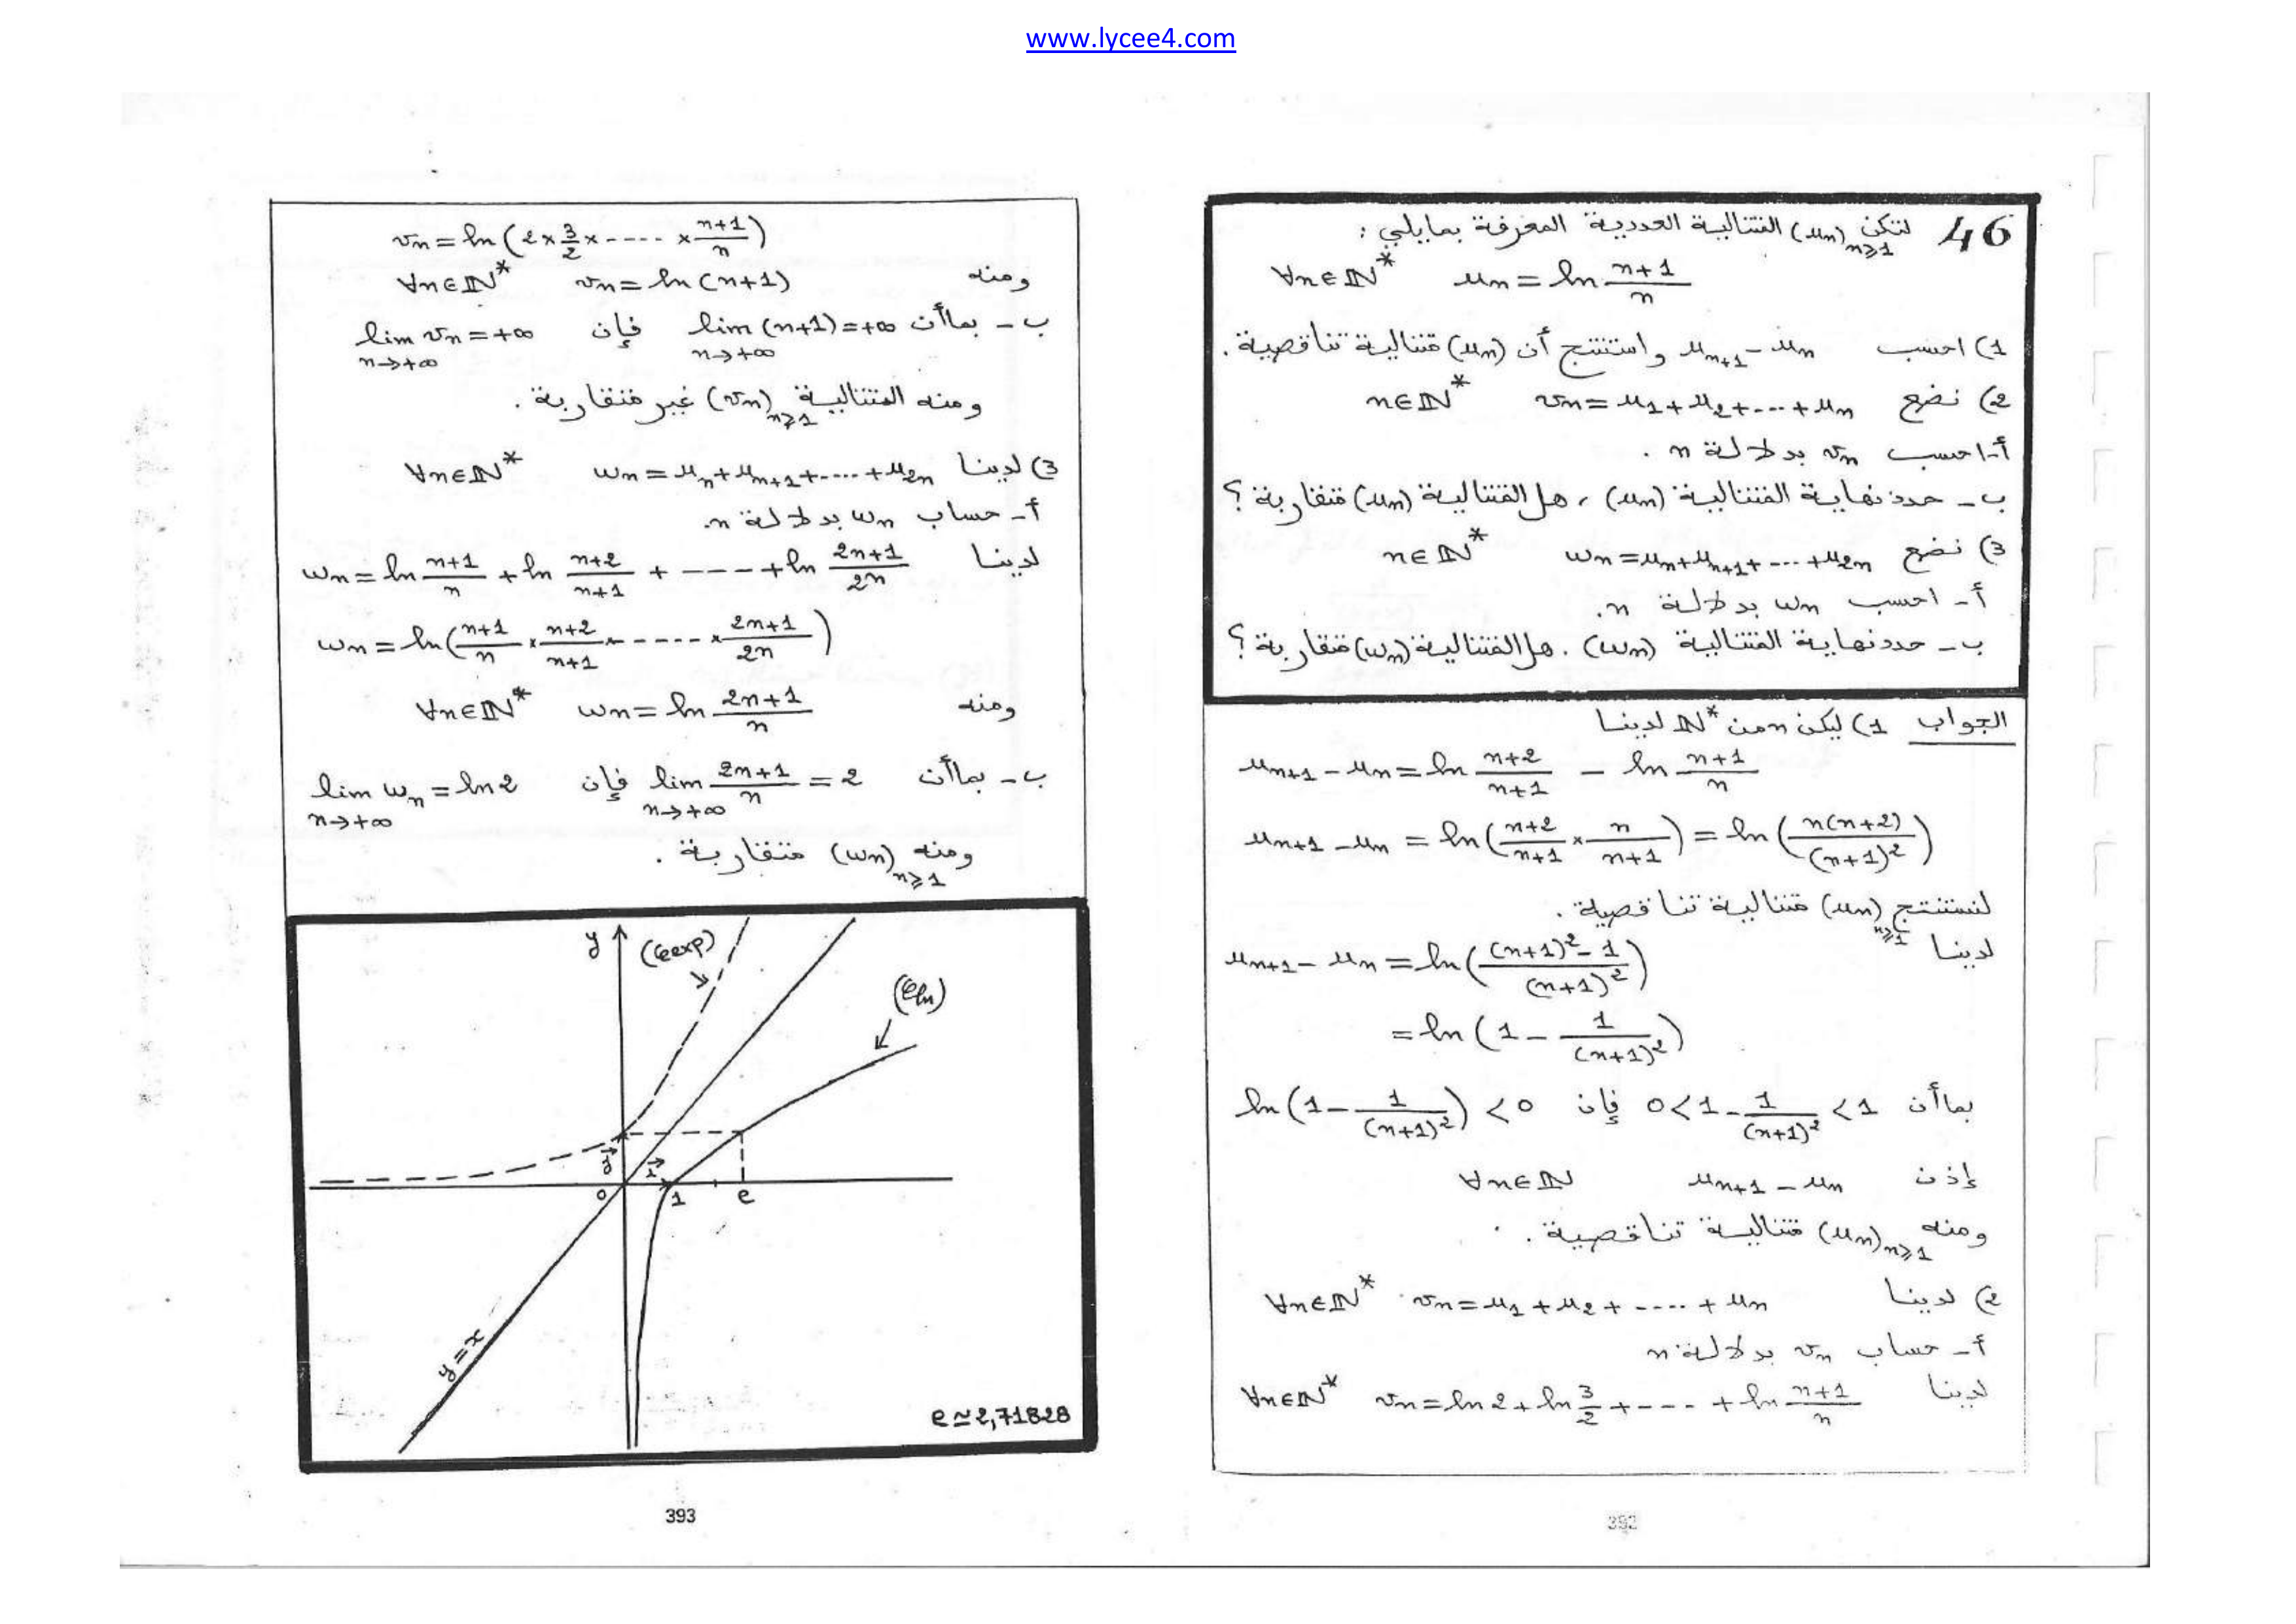 www.lycee4.com
46 لتكن (un)n≥1 المتتالية العددية المعرفة بمايلي :
∀n∈ℕ* un = ln (n+1)/n
1) احسب un+1 - un واستنتج أن (un) متتالية تناقصية.
2) نضع vn = u1 + u2 + ... + un n∈ℕ*
أ- احسب vn بدلالة n .
ب - حدد نهاية المتتالية (un) ، هل المتتالية (un) متقاربة ؟
3) نضع wn = un + un+1 + ... + u2n n∈ℕ*
أ - احسب wn بدلالة n.
ب - حدد نهاية المتتالية (wn) . هل المتتالية (wn) متقاربة ؟
الجواب 1) ليكن n من ℕ* لدينا
un+1 - un = ln (n+2)/(n+1) - ln (n+1)/n
un+1 - un = ln((n+2)/(n+1) × n/(n+1)) = ln(n(n+2)/(n+1)²)
لنستنتج (un)n≥1 متتالية تناقصية .
لدينا un+1 - un = ln(((n+1)² - 1)/(n+1)²)
= ln(1 - 1/(n+1)²)
بما أن 0 < 1 - 1/(n+1)² < 1 فإن ln(1 - 1/(n+1)²) < 0
إذن un+1 - un ∀n∈ℕ
ومنه (un)n≥1 متتالية تناقصية .
2) لدينا vn = u1 + u2 + .... + un ∀n∈ℕ*
أ - حساب vn بدلالة n
لدينا vn = ln 2 + ln 3/2 + ---- + ln (n+1)/n ∀n∈ℕ*
392
vn = ln(2 × 3/2 × ---- × (n+1)/n)
ومنه vn = ln(n+1) ∀n∈ℕ*
ب - بما أن lim (n+1) = +∞ فإن lim vn = +∞
n→+∞ n→+∞
ومنه المتتالية (vn)n≥1 غير متقاربة .
3) لدينا wn = un + un+1 + .... + u2n ∀n∈ℕ*
أ - حساب wn بدلالة n.
لدينا wn = ln (n+1)/n + ln (n+2)/(n+1) + ---- + ln (2n+1)/2n
wn = ln((n+1)/n × (n+2)/(n+1) × ---- × (2n+1)/2n)
ومنه wn = ln (2n+1)/n ∀n∈ℕ*
ب - بما أن lim (2n+1)/n = 2 فإن lim wn = ln 2
n→+∞ n→+∞
ومنه (wn)n≥1 متقاربة .
y
(Cexp)
(Cln)
j
i
0
1
e
y = x
e ≃ 2,71828
393